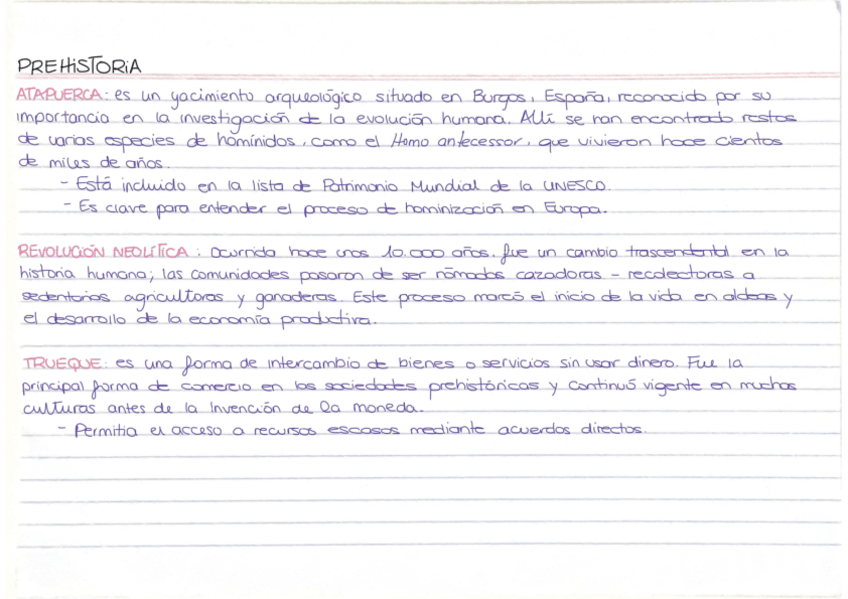 PREHISTORIA
ATAPUERCA: es un yacimiento arqueológico situado en Burgos, España, reconocido por su
importancia en la investigación de la evolución humana. Allí se han encontrado restos
de varias especies de homínidos, como el Homo antecessor, que vivieron hace cientos
de miles de años.
- Está incluido en la lista de Patrimonio Mundial de la UNESCO.
- Es clave para entender el proceso de hominización en Europa.
REVOLUCIÓN NEOLÍTICA: Ocurrida hace unos 10.000 años, fue un cambio trascendental en la
historia humana; las comunidades pasaron de ser nómadas cazadoras - recolectoras a
sedentarias agricultoras y ganaderas. Este proceso marcó el inicio de la vida en aldeas y
el desarrollo de la economía productiva.
TRUEQUE: es una forma de intercambio de bienes o servicios sin usar dinero. Fue la
principal forma de comercio en las sociedades prehistóricas y continuó vigente en muchas
culturas antes de la invención de la moneda.
- Permitía el acceso a recursos escasos mediante acuerdos directos.